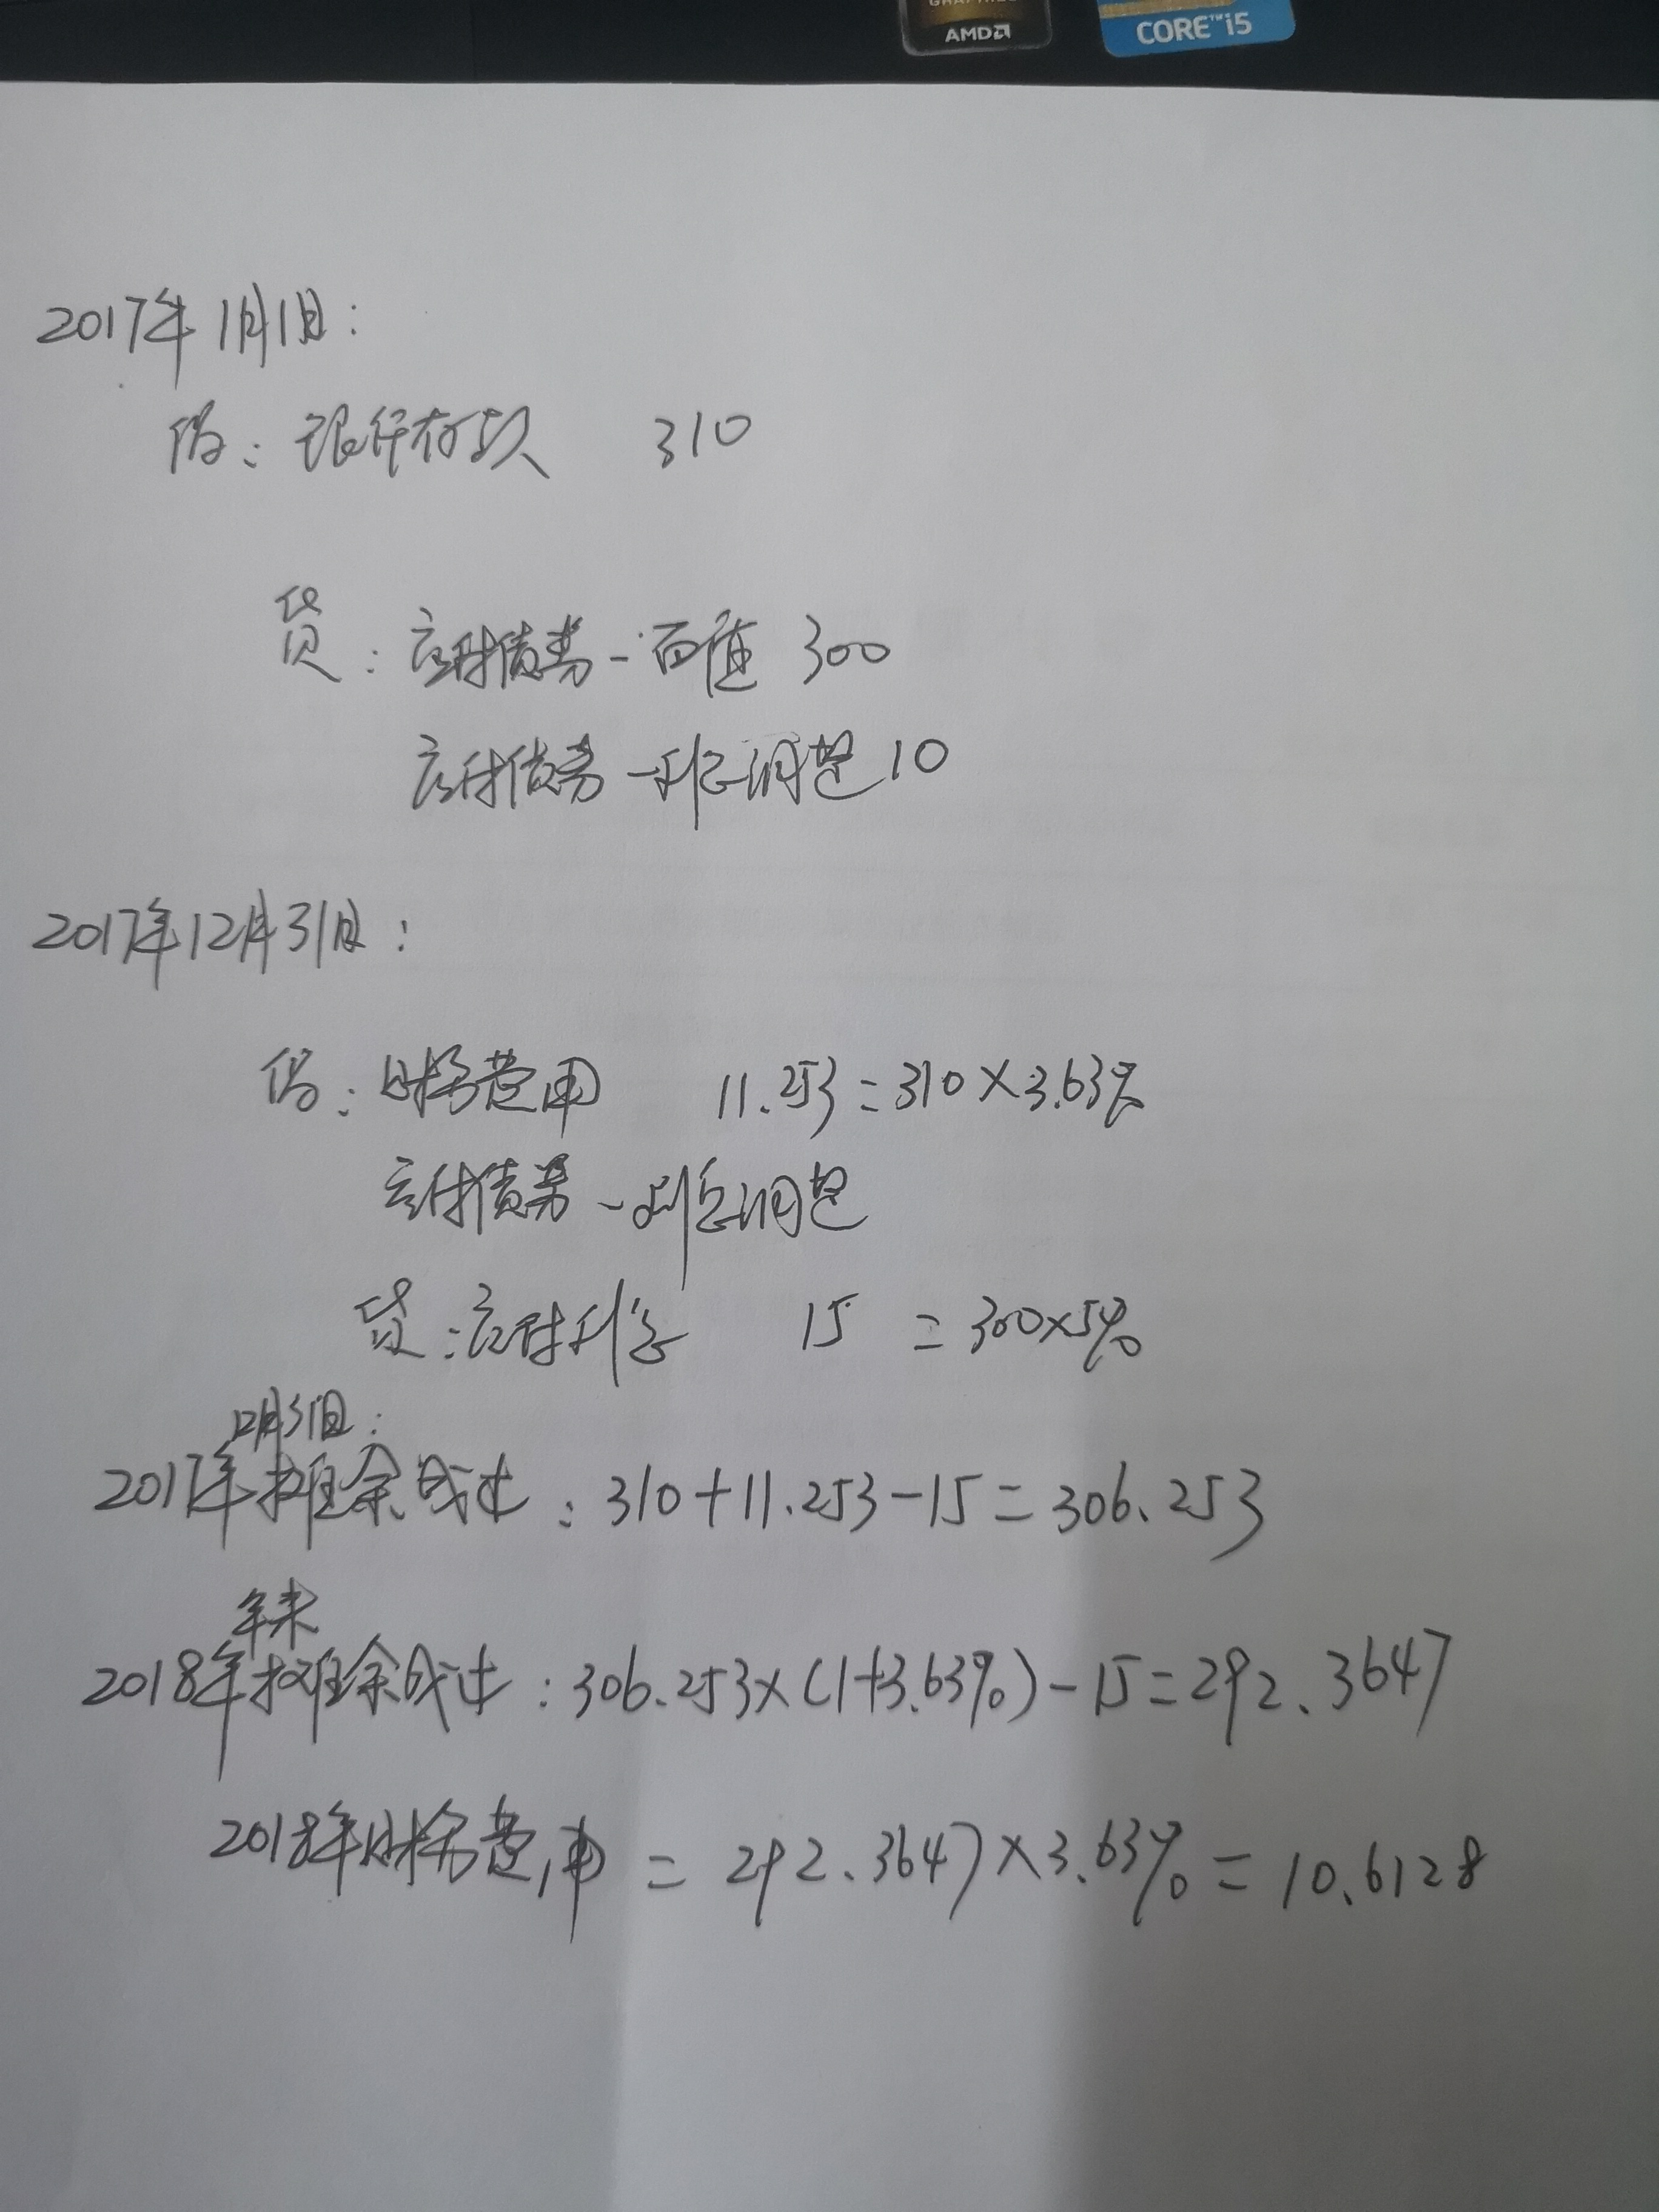 AMD
CORE™i5
2017年1月1日:
借: 银行存款 310
贷: 应付债券-面值 300
应付债券-利息调整 10
2017年12月31日:
借: 财务费用 11.253=310×3.63%
应付债券-利息调整
贷:应付利息 15 =300×5%
12月31日:
2017年摊余成本: 310+11.253-15=306.253
年末
2018年摊余成本:306.253×(1+3.63%)-15=292.3647
2018年财务费用 = 292.3647×3.63% = 10.6128